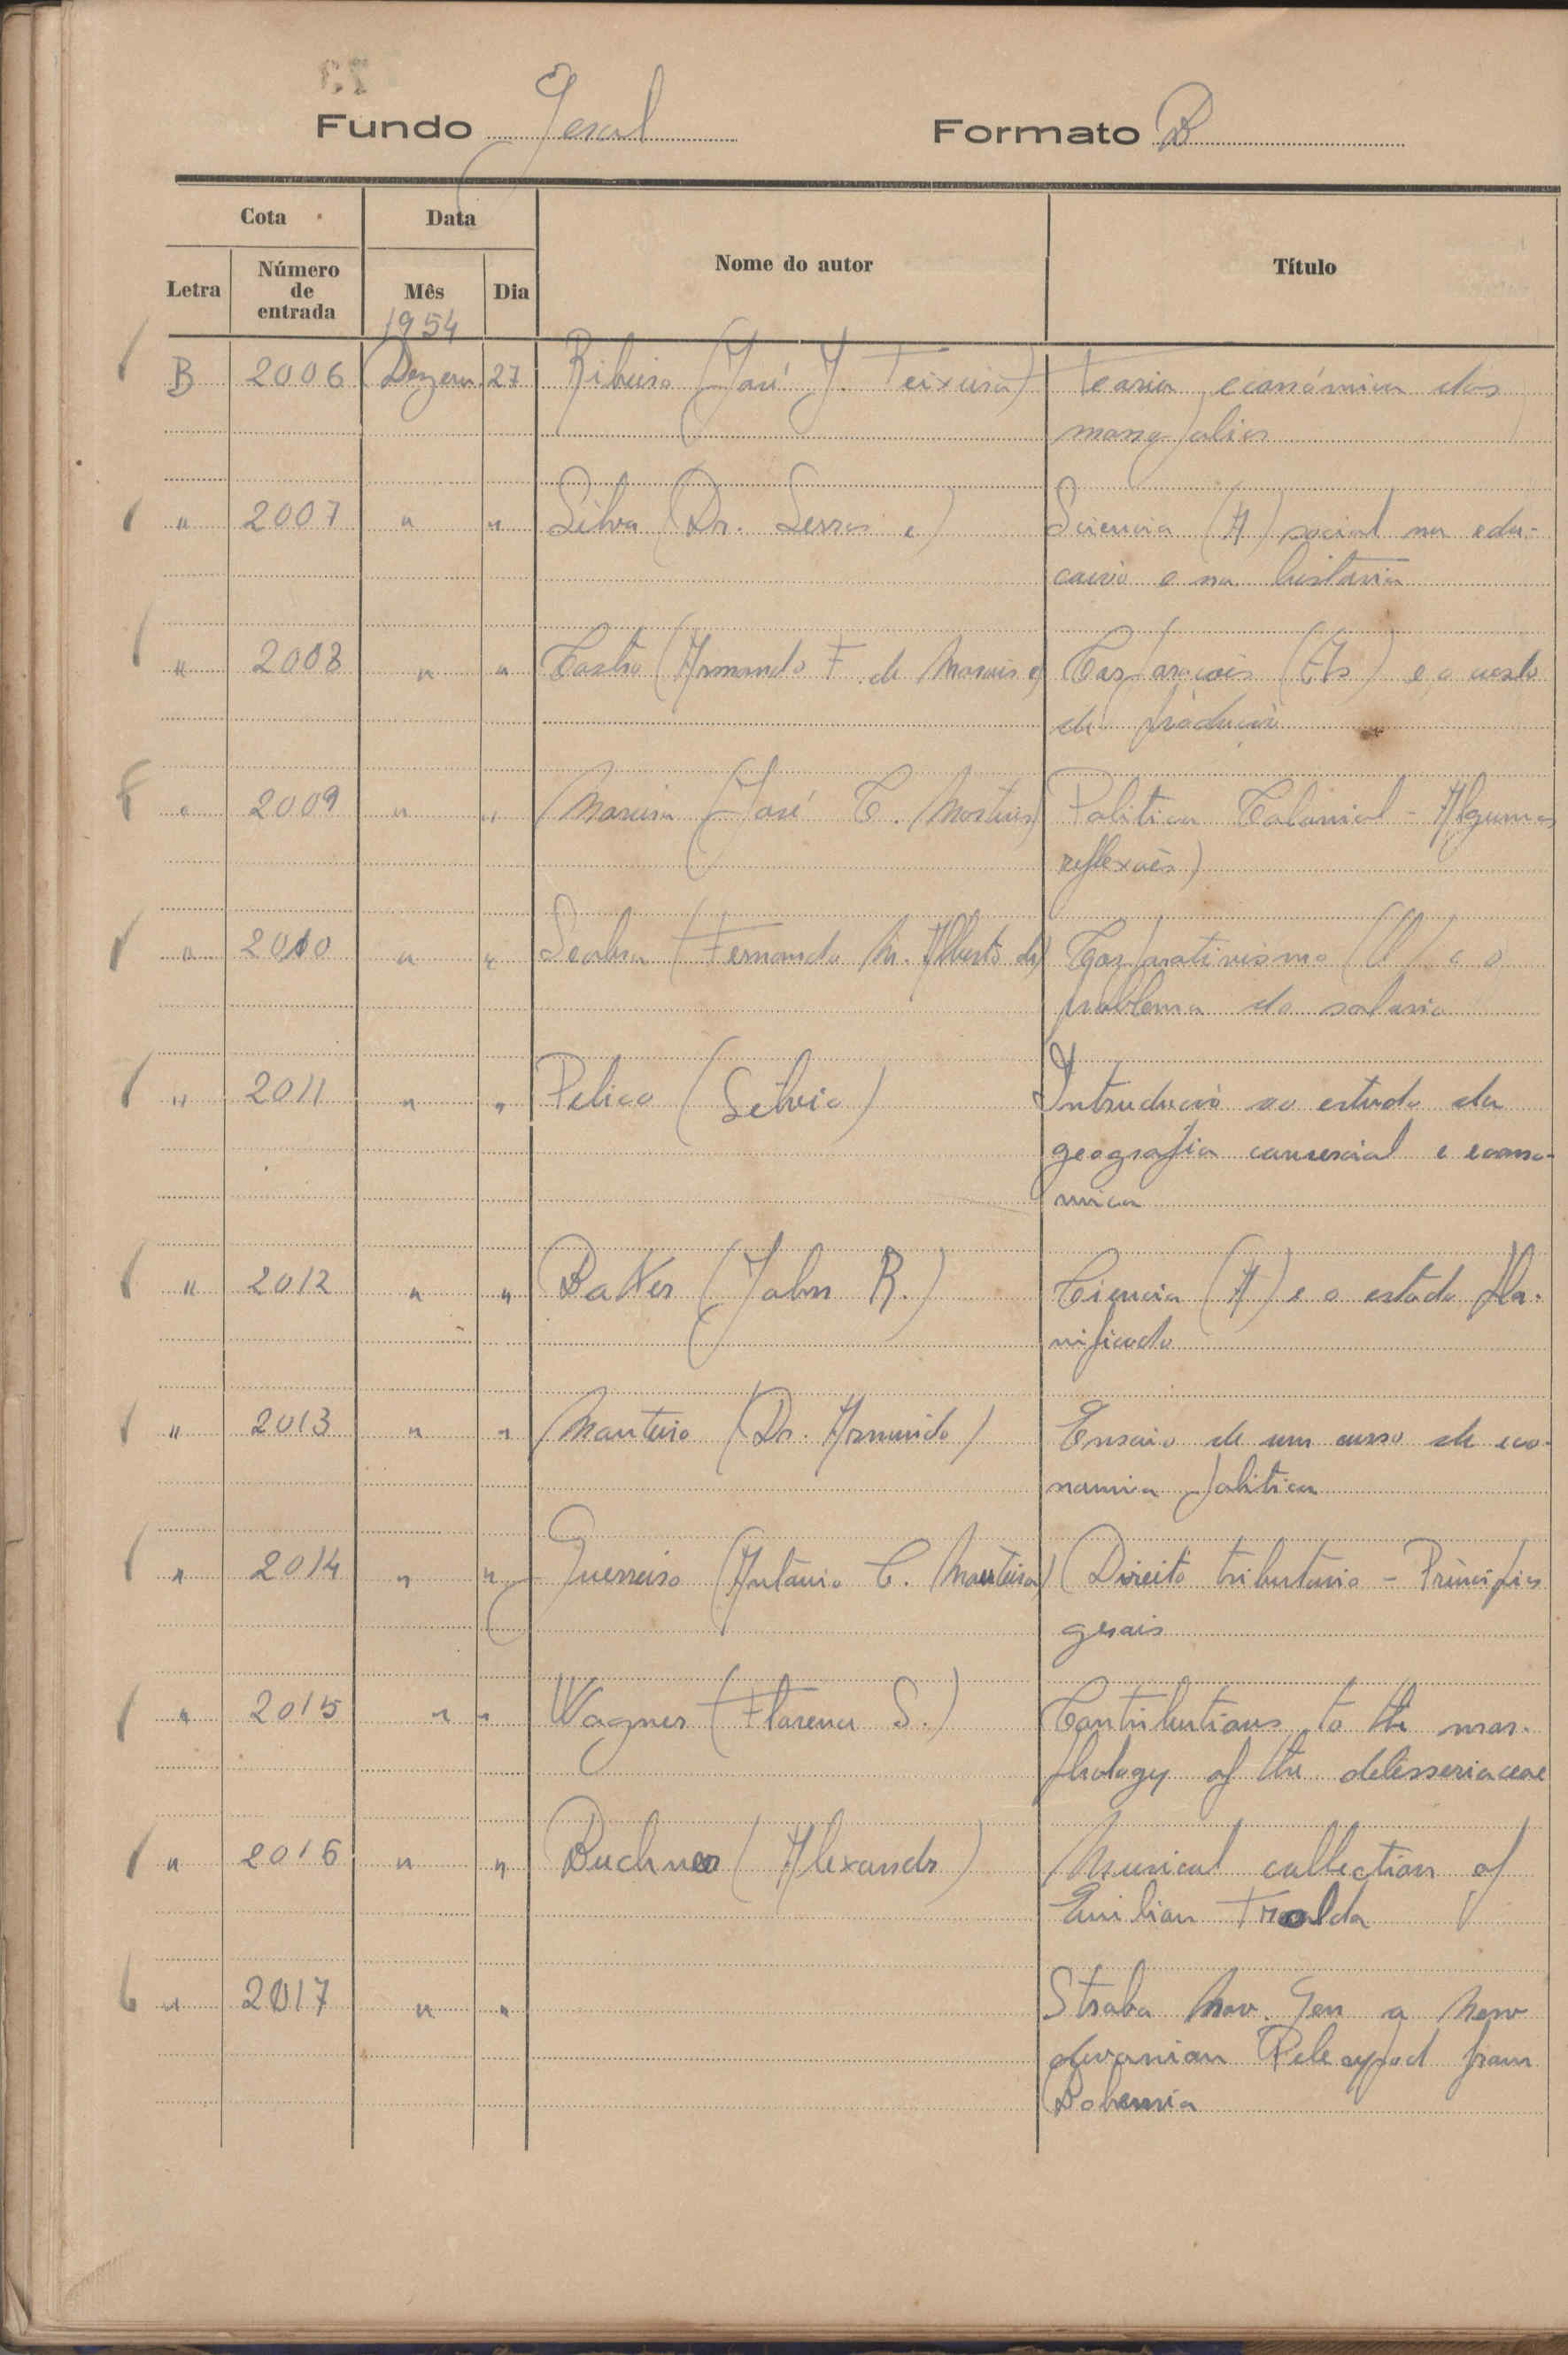 Fundo Geral Formato B
Cota Data Nome do autor Título
Letra Número de entrada Mês Dia
1954
B 2006 Dezem 27 Ribeiro (José J. Teixeira) Teoria económica dos
monopolios
" 2007 " " Silva (Dr. Serras e) Sciencia (A) social na edu-
cação e na historia
" 2008 " " Castro (Armando F. de Morais e) Corporações (As) e o custo
de produção
" 2009 " " Moreira (José C. Martins) Politica Colonial - Algumas
reflexoẽs)
" 2010 " " Seabra (Fernando M. Alberto de) Corporativismo (O) e o
problema do salario
" 2011 " " Pelico (Silvio) Introdução ao estudo da
geografia comercial e econo-
mica
" 2012 " " Baker (John R.) Ciencia (A) e o estado pla-
nificado
" 2013 " " Monteiro (Dr. Armindo) Ensaio de um curso de eco-
nomia politica
" 2014 " " Guerreiro (António C. Monteiro) Direito tributario - Principios
gerais
" 2015 " " Wagner (Florence S.) Contributions to the mor-
phology of the delesseriaceae
" 2016 " " Buchner (Alexandr) Musical collection of
Emilian Trolda
" 2017 " " Straba Nov. Gen a New
devonian Pelecypod from
Bohemia